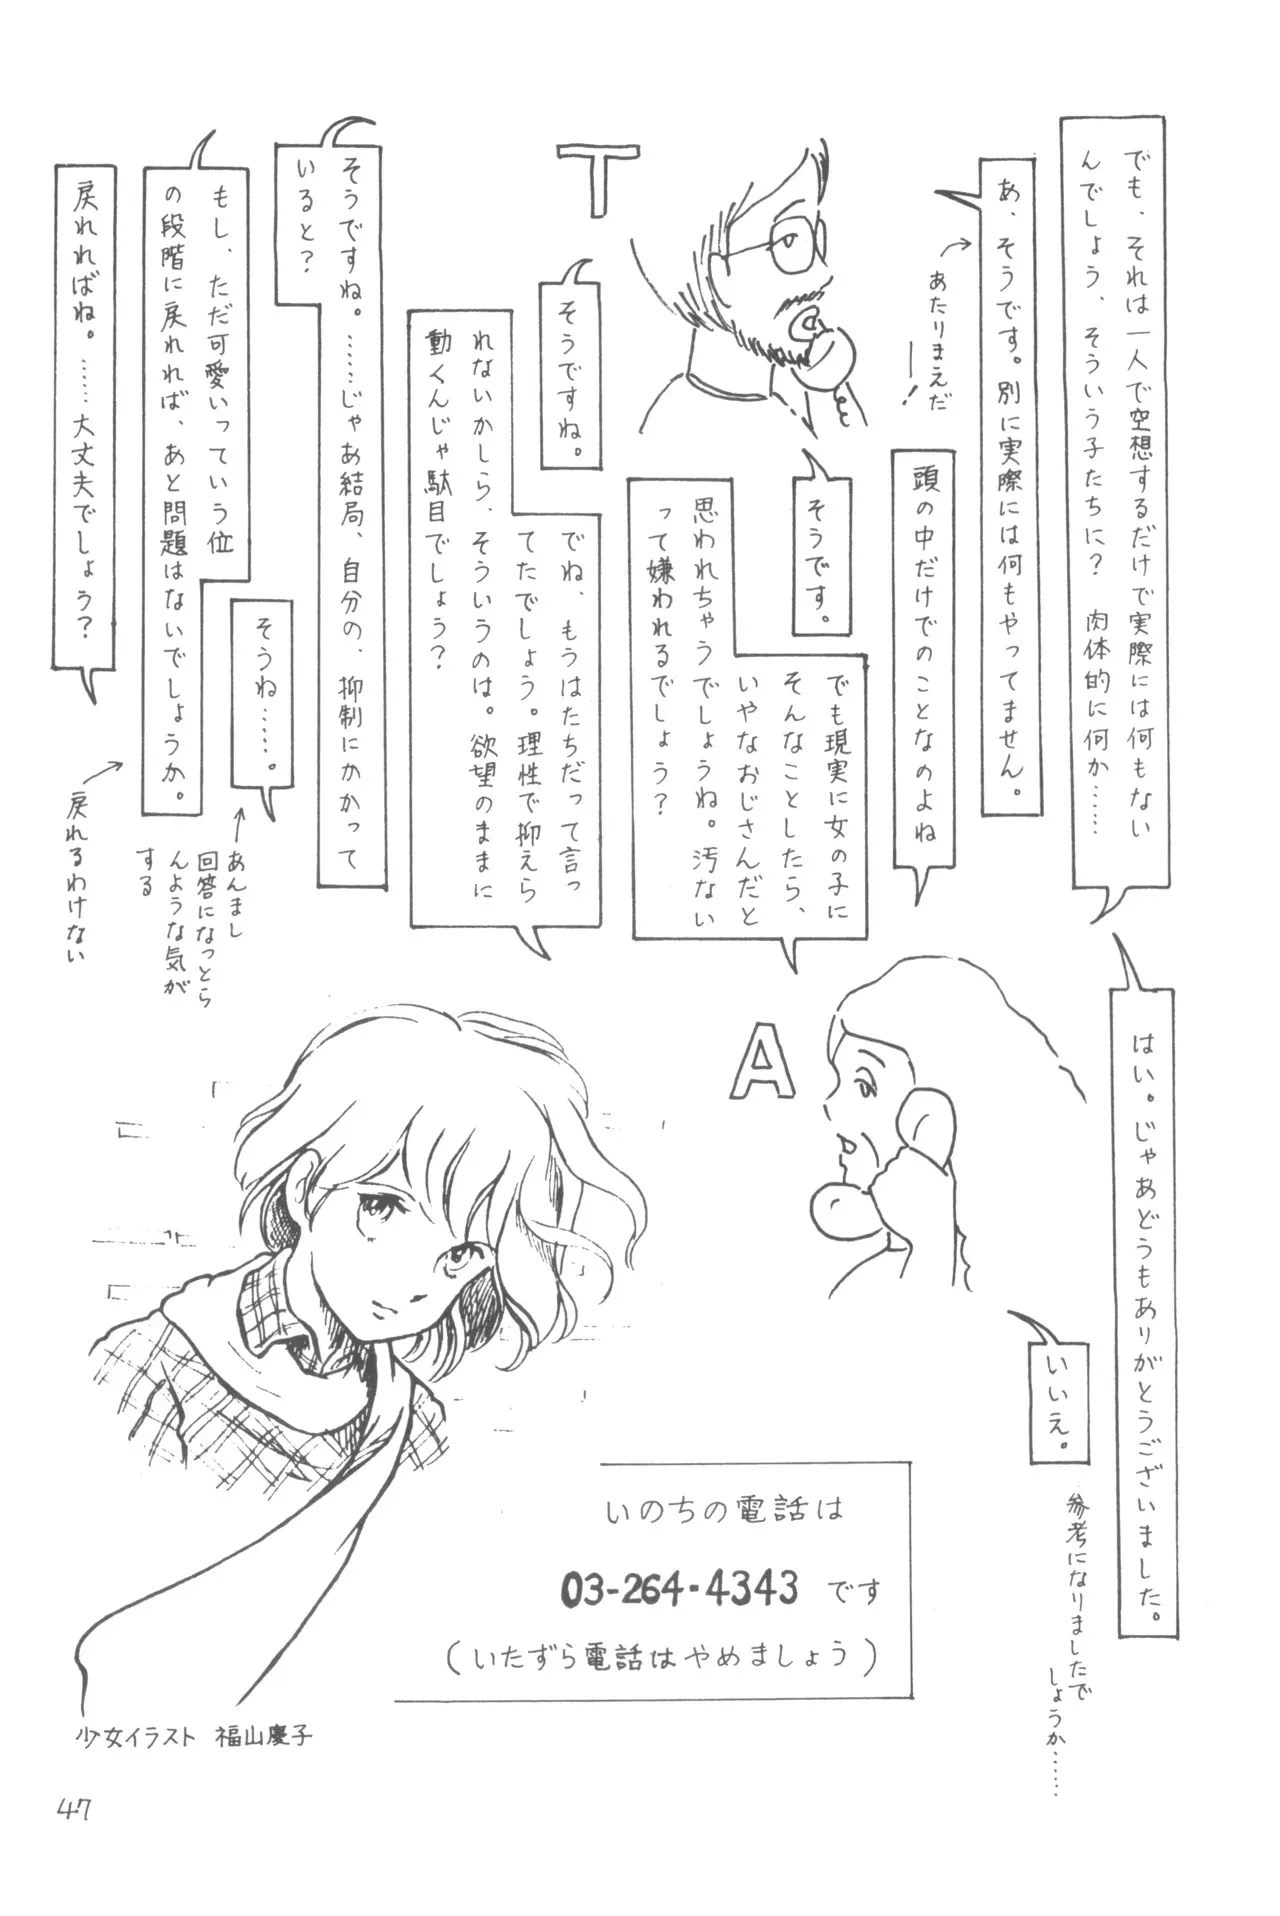 でも、それは一人で空想するだけで実際には何もない
んでしょう、そういう子たちに？　肉体的に何か……
あ、そうです。別に実際には何もやってません。
あたりまえだ
──！
頭の中だけでのことなのよね
そうです。
でも現実に女の子に
そんなことしたら、
いやなおじさんだと
思われちゃうでしょうね。汚ない
って嫌われるでしょう？
そうですね。
でね、もうはたちだって言っ
てたでしょう。理性で抑えら
れないかしら、そういうのは。欲望のままに
動くんじゃ駄目でしょう？
そうですね。……じゃあ結局、自分の、抑制にかかって
いると？
そうね……。
あんまし
回答になっとら
んような気が
する
もし、ただ可愛いっていう位
の段階に戻れれば、あと問題はないでしょうか。
戻れるわけない
戻れればね。……大丈夫でしょう？
はい。じゃあどうもありがとうございました。
いいえ。
参考になりましたで
しょうか……
T
A
いのちの電話は
03-264・4343 です
（いたずら電話はやめましょう）
少女イラスト　福山慶子
47